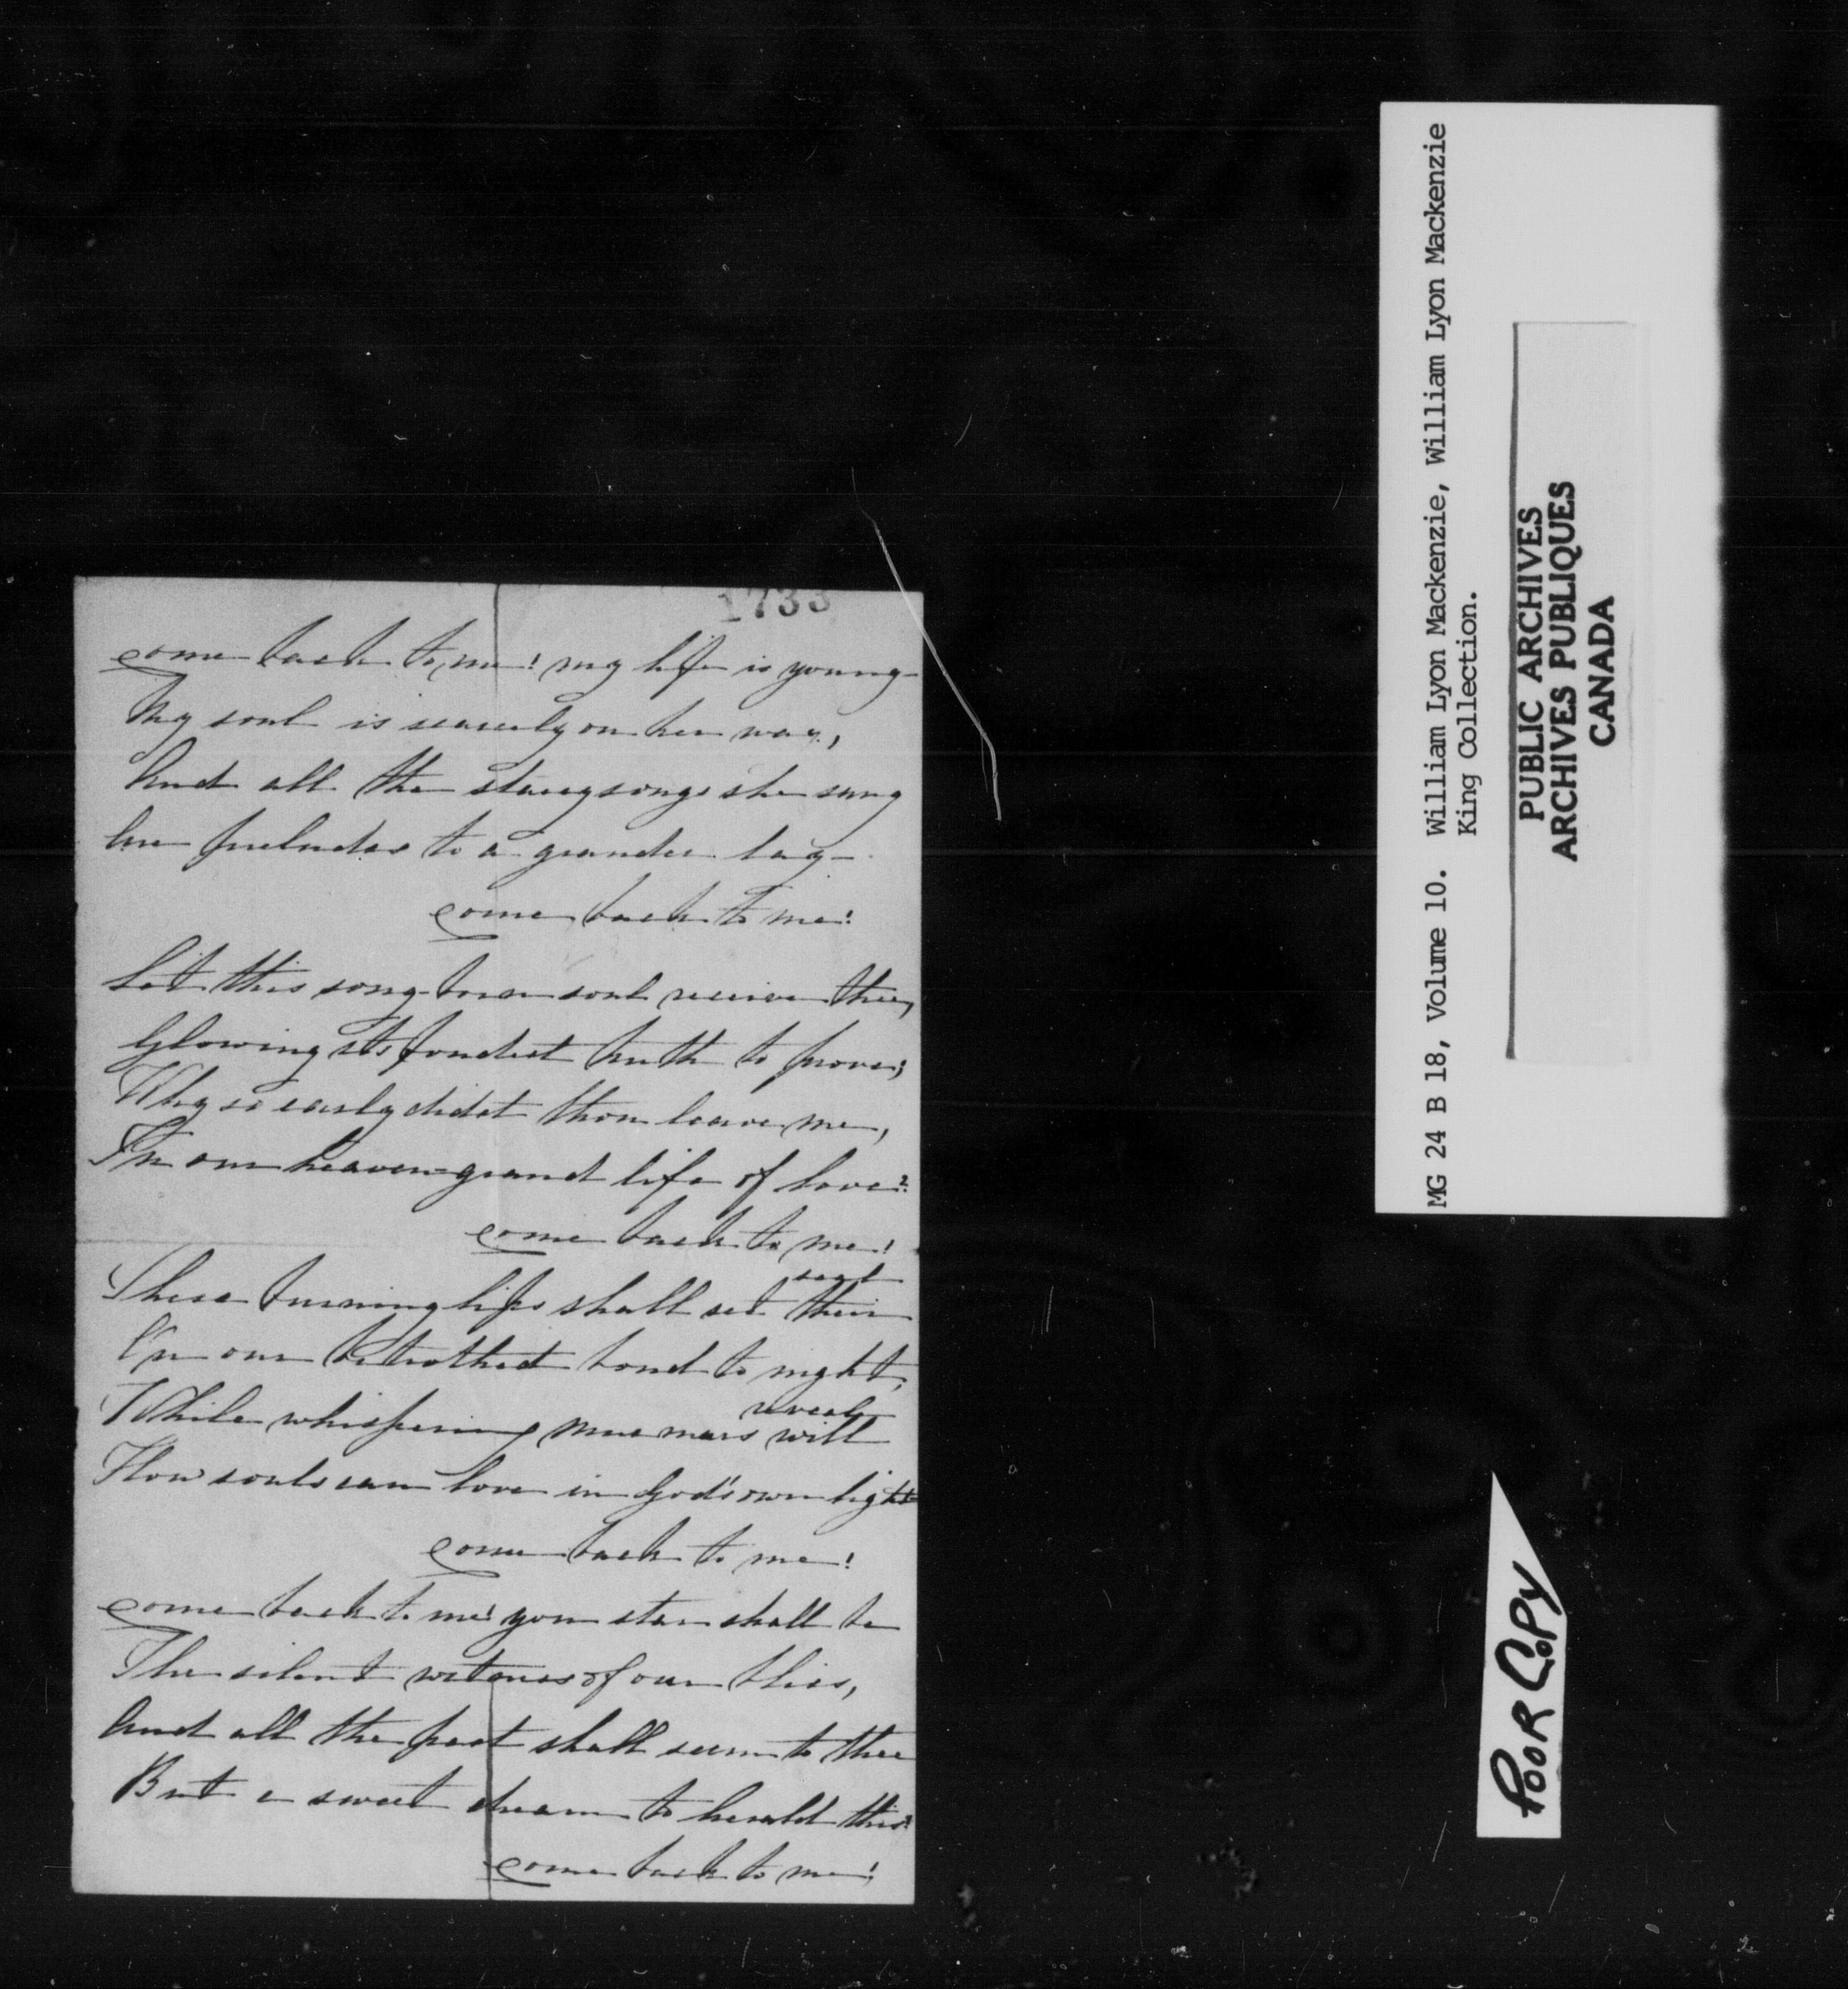 1733
come back to me! my life is young—
My soul is scarcely on her way,
And all the starry songs she sung
Are preludes to a grander lay—
come back to me!
Let this song-born soul receive thee,
Glowing its fondest truth to prove;
Why so early didst thou leave me,
In our heaven-grand life of love?
come back to me!
These burning lips shall set their seal
On our betrothed bond to night,
While whispering murmurs will reveal
How souls can love in God's own light
come back to me!
come back to me! yon star shall be
The silent witness of our bliss,
And all the past shall seem to thee
But a sweet dream to herald this!
come back to me!
MG 24 B 18, Volume 10. William Lyon Mackenzie, William Lyon Mackenzie
King Collection.
PUBLIC ARCHIVES
ARCHIVES PUBLIQUES
CANADA
POOR COPY